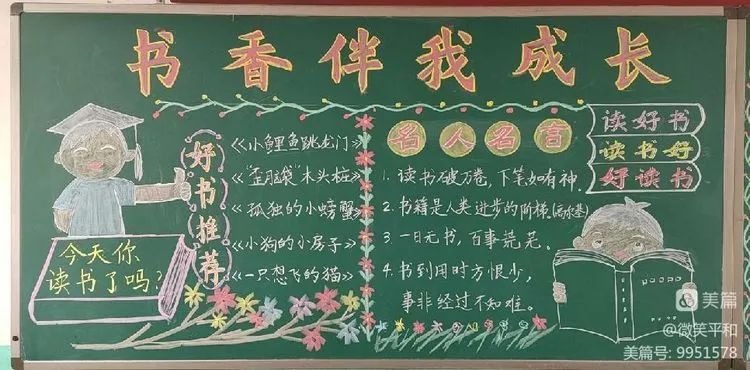 书香伴我成长
好书推荐
《小鲤鱼跳龙门》
《"歪脑袋"木头桩》
《孤独的小螃蟹》
《小狗的小房子》
《一只想飞的猫》
今天你
读书了吗?
名人名言
1. 读书破万卷，下笔如有神.
2. 书籍是人类进步的阶梯.(高尔基)
3. 一日无书，百事荒芜。
4. 书到用时方恨少，
事非经过不知难。
读好书
读书好
好读书
美篇
@微笑平和
美篇号: 9951578